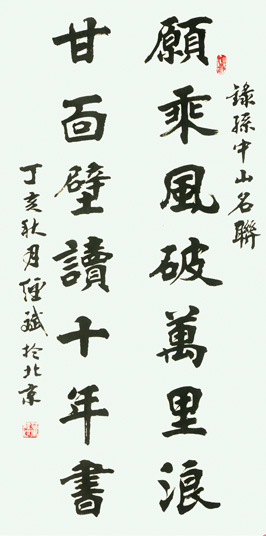 錄孫中山名聯
願乘風破萬里浪
甘面壁讀十年書
丁亥秋月經斌於北京